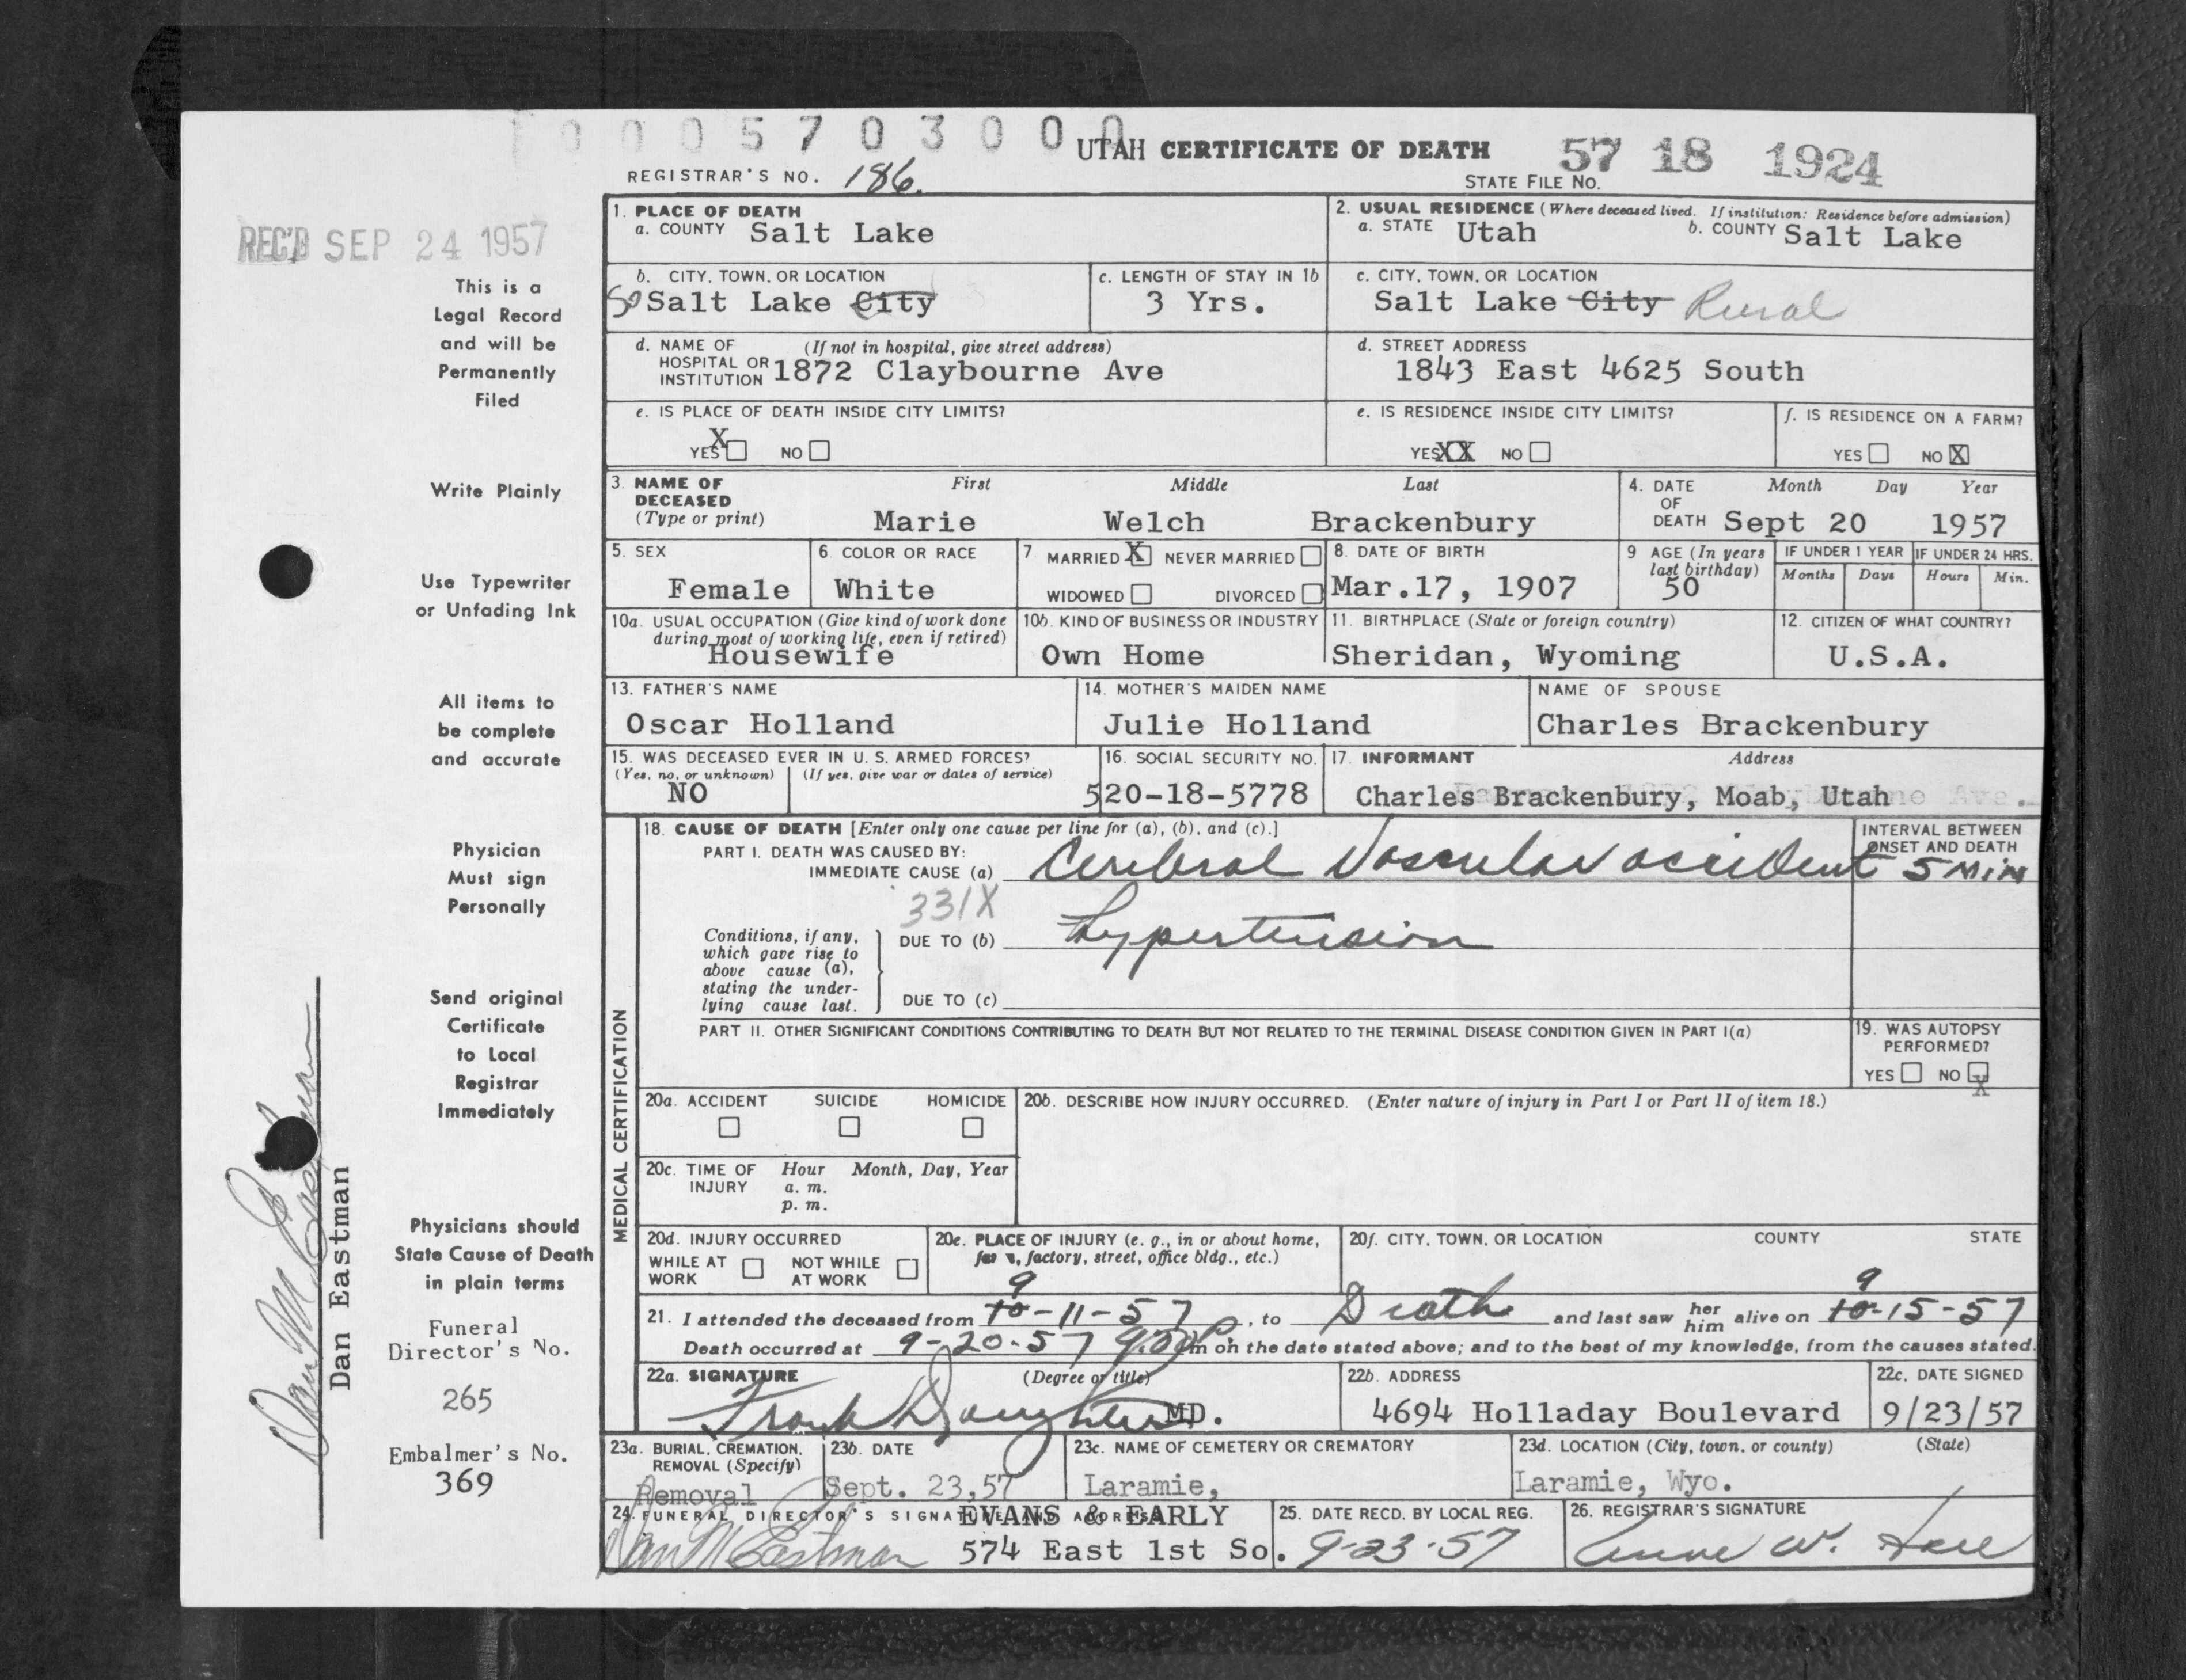 0005703000
UTAH CERTIFICATE OF DEATH 57 18 1924
REGISTRAR'S NO. 186. STATE FILE NO.
REC'D SEP 24 1957
This is a
Legal Record
and will be
Permanently
Filed
Write Plainly
Use Typewriter
or Unfading Ink
All items to
be complete
and accurate
Physician
Must sign
Personally
Send original
Certificate
to Local
Registrar
Immediately
Physicians should
State Cause of Death
in plain terms
Funeral
Director's No.
265
Embalmer's No.
369
Dan M Eastman
Dan Eastman
1. PLACE OF DEATH
a. COUNTY Salt Lake
2. USUAL RESIDENCE (Where deceased lived. If institution: Residence before admission)
a. STATE Utah b. COUNTY Salt Lake
b. CITY, TOWN, OR LOCATION
So Salt Lake City
c. LENGTH OF STAY IN 1b
3 Yrs.
c. CITY, TOWN, OR LOCATION
Salt Lake City Rural
d. NAME OF (If not in hospital, give street address)
HOSPITAL OR
INSTITUTION 1872 Claybourne Ave
d. STREET ADDRESS
1843 East 4625 South
e. IS PLACE OF DEATH INSIDE CITY LIMITS?
YES X NO
e. IS RESIDENCE INSIDE CITY LIMITS?
YES XX NO
f. IS RESIDENCE ON A FARM?
YES NO X
3. NAME OF DECEASED First Middle Last
(Type or print) Marie Welch Brackenbury
4. DATE OF DEATH Month Day Year
Sept 20 1957
5. SEX
Female
6. COLOR OR RACE
White
7. MARRIED X NEVER MARRIED
WIDOWED DIVORCED
8. DATE OF BIRTH
Mar.17, 1907
9 AGE (In years
last birthday)
50
IF UNDER 1 YEAR IF UNDER 24 HRS.
Months Days Hours Min.
10a. USUAL OCCUPATION (Give kind of work done
during most of working life, even if retired)
Housewife
10b. KIND OF BUSINESS OR INDUSTRY
Own Home
11. BIRTHPLACE (State or foreign country)
Sheridan, Wyoming
12. CITIZEN OF WHAT COUNTRY?
U.S.A.
13. FATHER'S NAME
Oscar Holland
14. MOTHER'S MAIDEN NAME
Julie Holland
NAME OF SPOUSE
Charles Brackenbury
15. WAS DECEASED EVER IN U. S. ARMED FORCES?
(Yes, no, or unknown) (If yes, give war or dates of service)
NO
16. SOCIAL SECURITY NO.
520-18-5778
17. INFORMANT Address
Charles Brackenbury, Moab, Utah
MEDICAL CERTIFICATION
18. CAUSE OF DEATH [Enter only one cause per line for (a), (b), and (c).]
PART I. DEATH WAS CAUSED BY:
IMMEDIATE CAUSE (a) Cerebral Vascular accident
INTERVAL BETWEEN
ONSET AND DEATH
5 MIN
331X
Conditions, if any,
which gave rise to
above cause (a),
stating the under-
lying cause last.
DUE TO (b) hypertension
DUE TO (c)
PART II. OTHER SIGNIFICANT CONDITIONS CONTRIBUTING TO DEATH BUT NOT RELATED TO THE TERMINAL DISEASE CONDITION GIVEN IN PART I(a)
19. WAS AUTOPSY
PERFORMED?
YES NO X
20a. ACCIDENT SUICIDE HOMICIDE
20b. DESCRIBE HOW INJURY OCCURRED. (Enter nature of injury in Part I or Part II of item 18.)
20c. TIME OF Hour Month, Day, Year
INJURY a. m.
p. m.
20d. INJURY OCCURRED
WHILE AT WORK NOT WHILE AT WORK
20e. PLACE OF INJURY (e. g., in or about home,
farm, factory, street, office bldg., etc.)
20f. CITY, TOWN, OR LOCATION COUNTY STATE
9 9
21. I attended the deceased from 10-11-57, to Death and last saw her him alive on 10-15-57
Death occurred at 9-20-57 m on the date stated above; and to the best of my knowledge, from the causes stated.
22a. SIGNATURE (Degree or title)
Frank MD.
22b. ADDRESS
4694 Holladay Boulevard
22c. DATE SIGNED
9/23/57
23a. BURIAL, CREMATION,
REMOVAL (Specify)
Removal
23b. DATE
Sept. 23,57
23c. NAME OF CEMETERY OR CREMATORY
Laramie,
23d. LOCATION (City, town, or county) (State)
Laramie, Wyo.
24. FUNERAL DIRECTOR'S SIGNATURE AND ADDRESS
EVANS & EARLY
Dan M Eastman 574 East 1st So.
25. DATE RECD. BY LOCAL REG.
9-23-57
26. REGISTRAR'S SIGNATURE
Anne W.